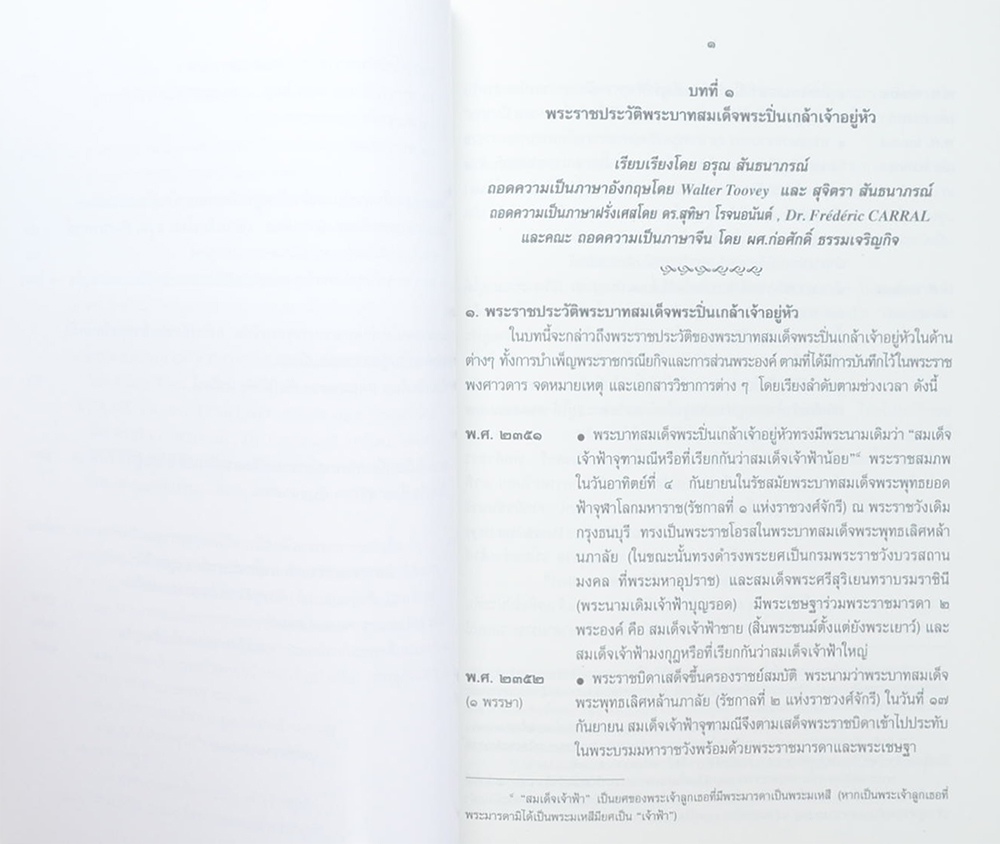 ๑
บทที่ ๑
พระราชประวัติพระบาทสมเด็จพระปิ่นเกล้าเจ้าอยู่หัว
เรียบเรียงโดย อรุณ สันธนาภรณ์
ถอดความเป็นภาษาอังกฤษโดย Walter Toovey และ สุจิตรา สันธนาภรณ์
ถอดความเป็นภาษาฝรั่งเศสโดย ดร.สุทิษา โรจนอนันต์ , Dr. Frédéric CARRAL
และคณะ ถอดความเป็นภาษาจีน โดย ผศ.ก่อศักดิ์ ธรรมเจริญกิจ
๑. พระราชประวัติพระบาทสมเด็จพระปิ่นเกล้าเจ้าอยู่หัว
ในบทนี้จะกล่าวถึงพระราชประวัติของพระบาทสมเด็จพระปิ่นเกล้าเจ้าอยู่หัวในด้าน
ต่างๆ ทั้งการบำเพ็ญพระราชกรณียกิจและการส่วนพระองค์ ตามที่ได้มีการบันทึกไว้ในพระราช
พงศาวดาร จดหมายเหตุ และเอกสารวิชาการต่าง ๆ โดยเรียงลำดับตามช่วงเวลา ดังนี้
พ.ศ. ๒๓๕๑ ● พระบาทสมเด็จพระปิ่นเกล้าเจ้าอยู่หัวทรงมีพระนามเดิมว่า “สมเด็จ
เจ้าฟ้าจุฑามณีหรือที่เรียกกันว่าสมเด็จเจ้าฟ้าน้อย” พระราชสมภพ
ในวันอาทิตย์ที่ ๔ กันยายนในรัชสมัยพระบาทสมเด็จพระพุทธยอด
ฟ้าจุฬาโลกมหาราช(รัชกาลที่ ๑ แห่งราชวงศ์จักรี) ณ พระราชวังเดิม
กรุงธนบุรี ทรงเป็นพระราชโอรสในพระบาทสมเด็จพระพุทธเลิศหล้า
นภาลัย (ในขณะนั้นทรงดำรงพระยศเป็นกรมพระราชวังบวรสถาน
มงคล ที่พระมหาอุปราช) และสมเด็จพระศรีสุริเยนทราบรมราชินี
(พระนามเดิมเจ้าฟ้าบุญรอด) มีพระเชษฐาร่วมพระราชมารดา ๒
พระองค์ คือ สมเด็จเจ้าฟ้าชาย (สิ้นพระชนม์ตั้งแต่ยังพระเยาว์) และ
สมเด็จเจ้าฟ้ามงกุฎหรือที่เรียกกันว่าสมเด็จเจ้าฟ้าใหญ่
พ.ศ. ๒๓๕๒ ● พระราชบิดาเสด็จขึ้นครองราชย์สมบัติ พระนามว่าพระบาทสมเด็จ
(๑ พรรษา) พระพุทธเลิศหล้านภาลัย (รัชกาลที่ ๒ แห่งราชวงศ์จักรี) ในวันที่ ๑๗
กันยายน สมเด็จเจ้าฟ้าจุฑามณีจึงตามเสด็จพระราชบิดาเข้าไปประทับ
ในพระบรมมหาราชวังพร้อมด้วยพระราชมารดาและพระเชษฐา
“สมเด็จเจ้าฟ้า” เป็นยศของพระเจ้าลูกเธอที่มีพระมารดาเป็นพระมเหสี (หากเป็นพระเจ้าลูกเธอที่
พระมารดามิได้เป็นพระมเหสีมียศเป็น “เจ้าฟ้า”)